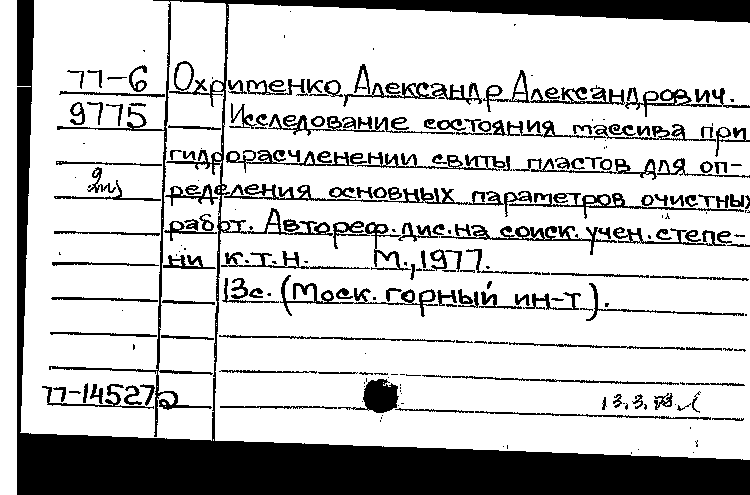 77-6 Охрименко, Александр Александрович.
9775 Исследование состояния массива при
гидрорасчленении свиты пластов для оп-
ределения основных параметров очистных
работ. Автореф. дис. на соиск. учен. степе-
ни к.т.н. М., 1977.
13с. (Моск. горный ин-т).
77-14527
13.3.78